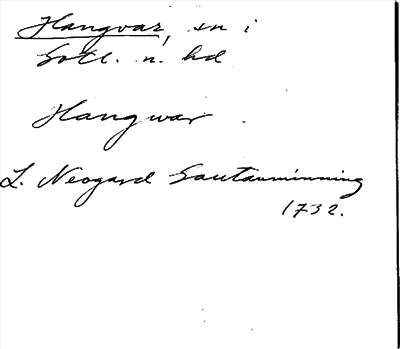 Hangvar, sn i
Gotl. n. hd
Hangwar
L. Neogard Gautauminning
1732.